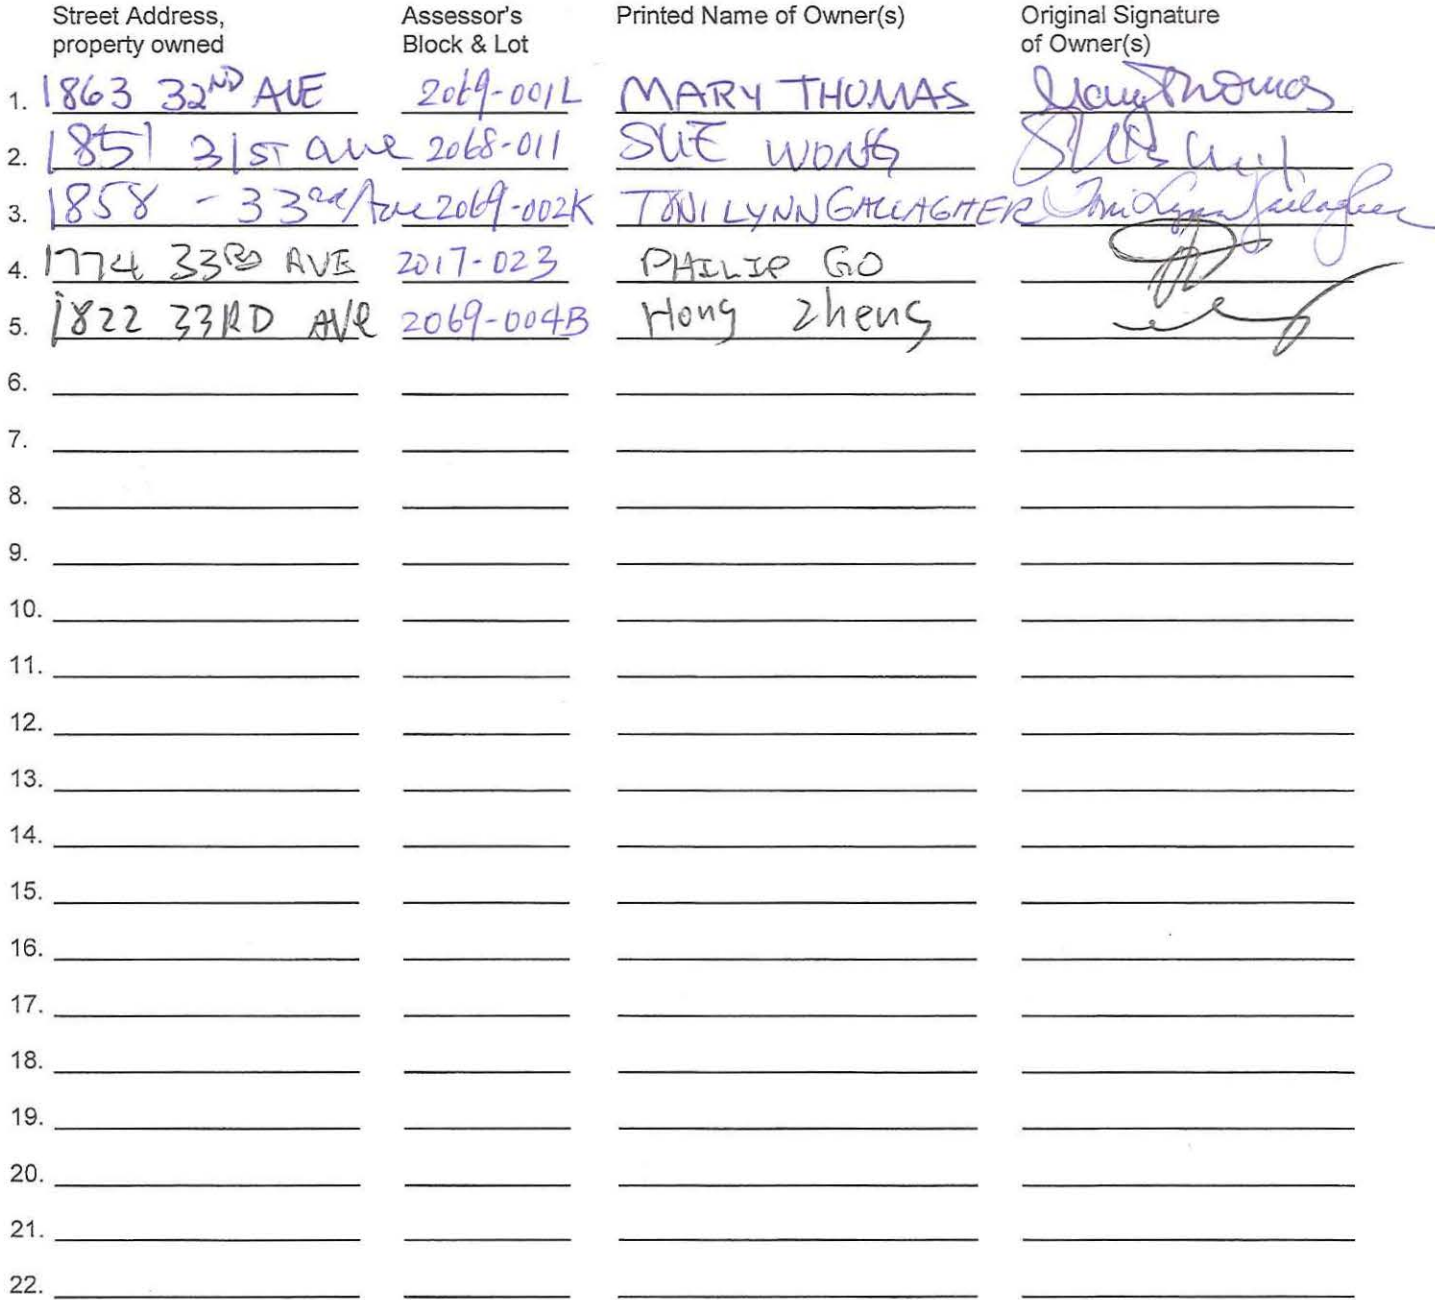 Street Address, property owned Assessor's Block & Lot Printed Name of Owner(s) Original Signature of Owner(s)
1. 1863 32ND AVE 2069-001L MARY THOMAS Mary Thomas
2. 1851 31ST ave 2068-011 SUE WONG
3. 1858 - 33rd/Ave 2069-002K TONI LYNN GALLAGHER Toni Lynn Gallagher
4. 1774 33RD AVE 2017-023 PHILIP GO
5. 1822 33RD AVe 2069-004B Hong Zheng
6.
7.
8.
9.
10.
11.
12.
13.
14.
15.
16.
17.
18.
19.
20.
21.
22.